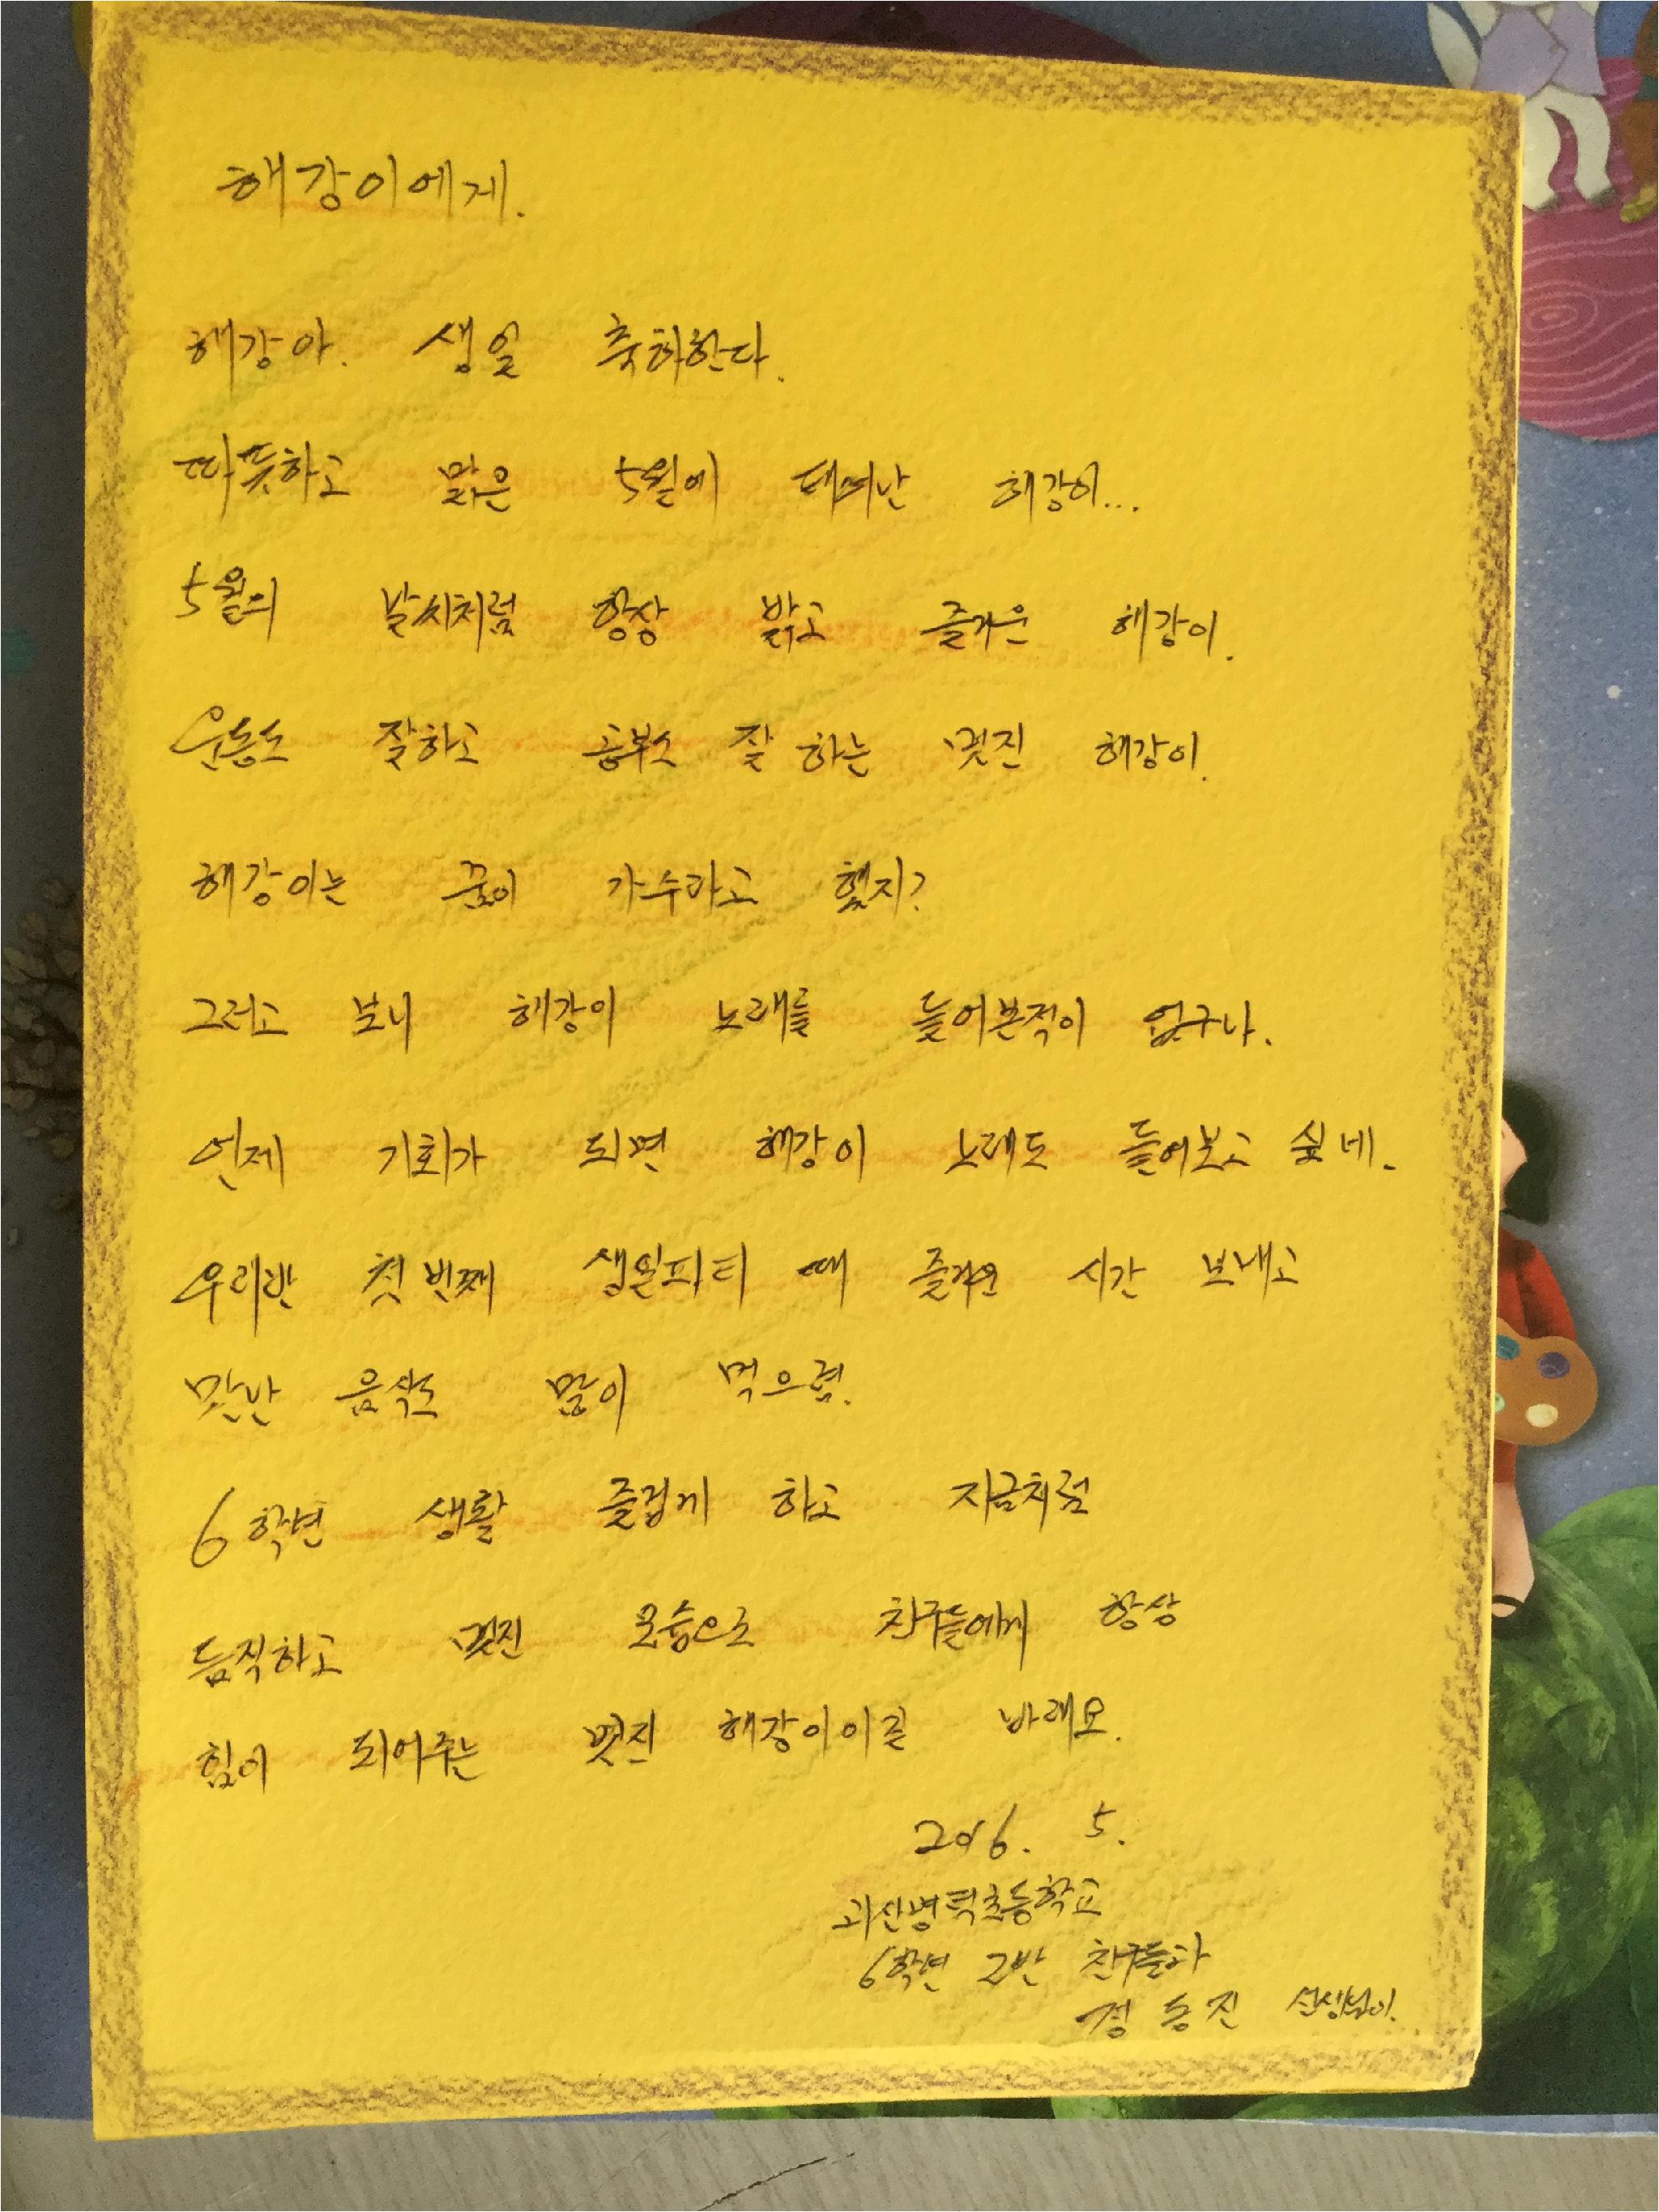 해강이에게.
해강아. 생일 축하한다.
따뜻하고 맑은 5월에 태어난 해강이...
5월의 날씨처럼 항상 밝고 즐거운 해강이.
운동도 잘하고 공부도 잘 하는 멋진 해강이.
해강이는 꿈이 가수라고 했지?
그러고 보니 해강이 노래를 들어본적이 없구나.
언제 기회가 되면 해강이 노래도 들어보고 싶네.
우리반 첫번째 생일파티 때 즐거운 시간 보내고
맛난 음식도 많이 먹으렴.
6학년 생활 즐겁게 하고 지금처럼
듬직하고 멋진 모습으로 친구들에게 항상
힘이 되어주는 멋진 해강이이길 바래요.
2016. 5.
괴산명덕초등학교
6학년 2반 친구들과
정동진 선생님이.